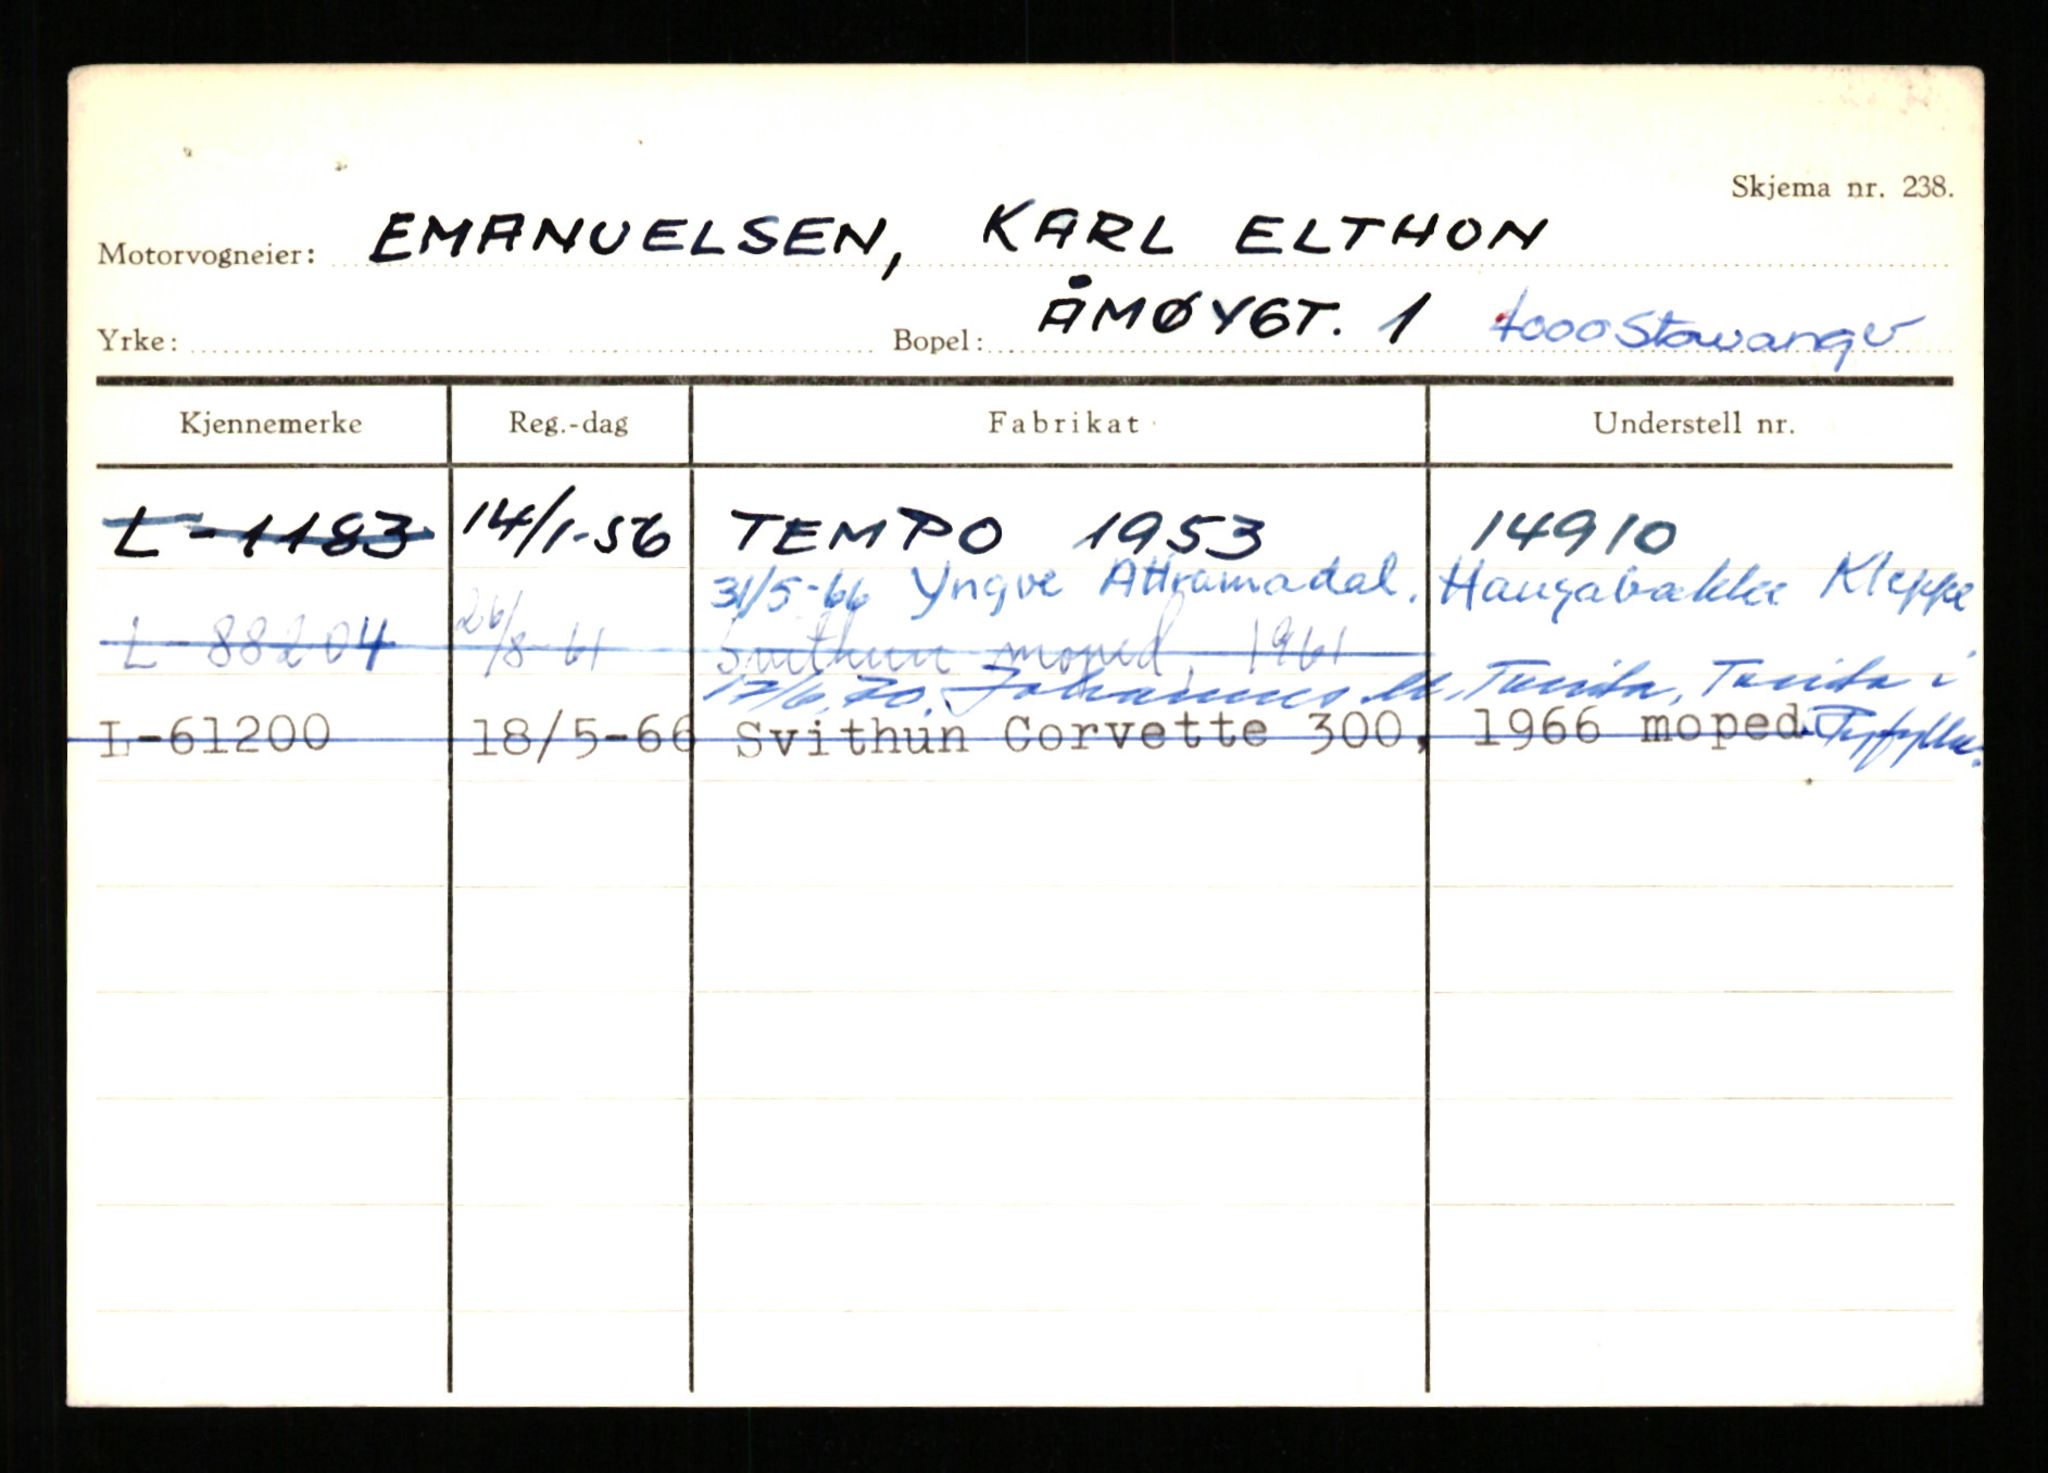 Skjema nr. 238.
Motorvogneier: EMANUELSEN, KARL ELTHON
Yrke: Bopel: ÅMØYGT. 1 4000 Stavanger
Kjennemerke Reg.-dag Fabrikat Understell nr.
L-1183 14/1-56 TEMPO 1953 14910
31/5-66 Yngve Attramadal, Haugabakke Kleppe
L-88204 26/8-61 Svithun moped, 1961
17/6.70. Johannes M. Tveita, Tveita i
L-61200 18/5-66 Svithun Corvette 300, 1966 moped.